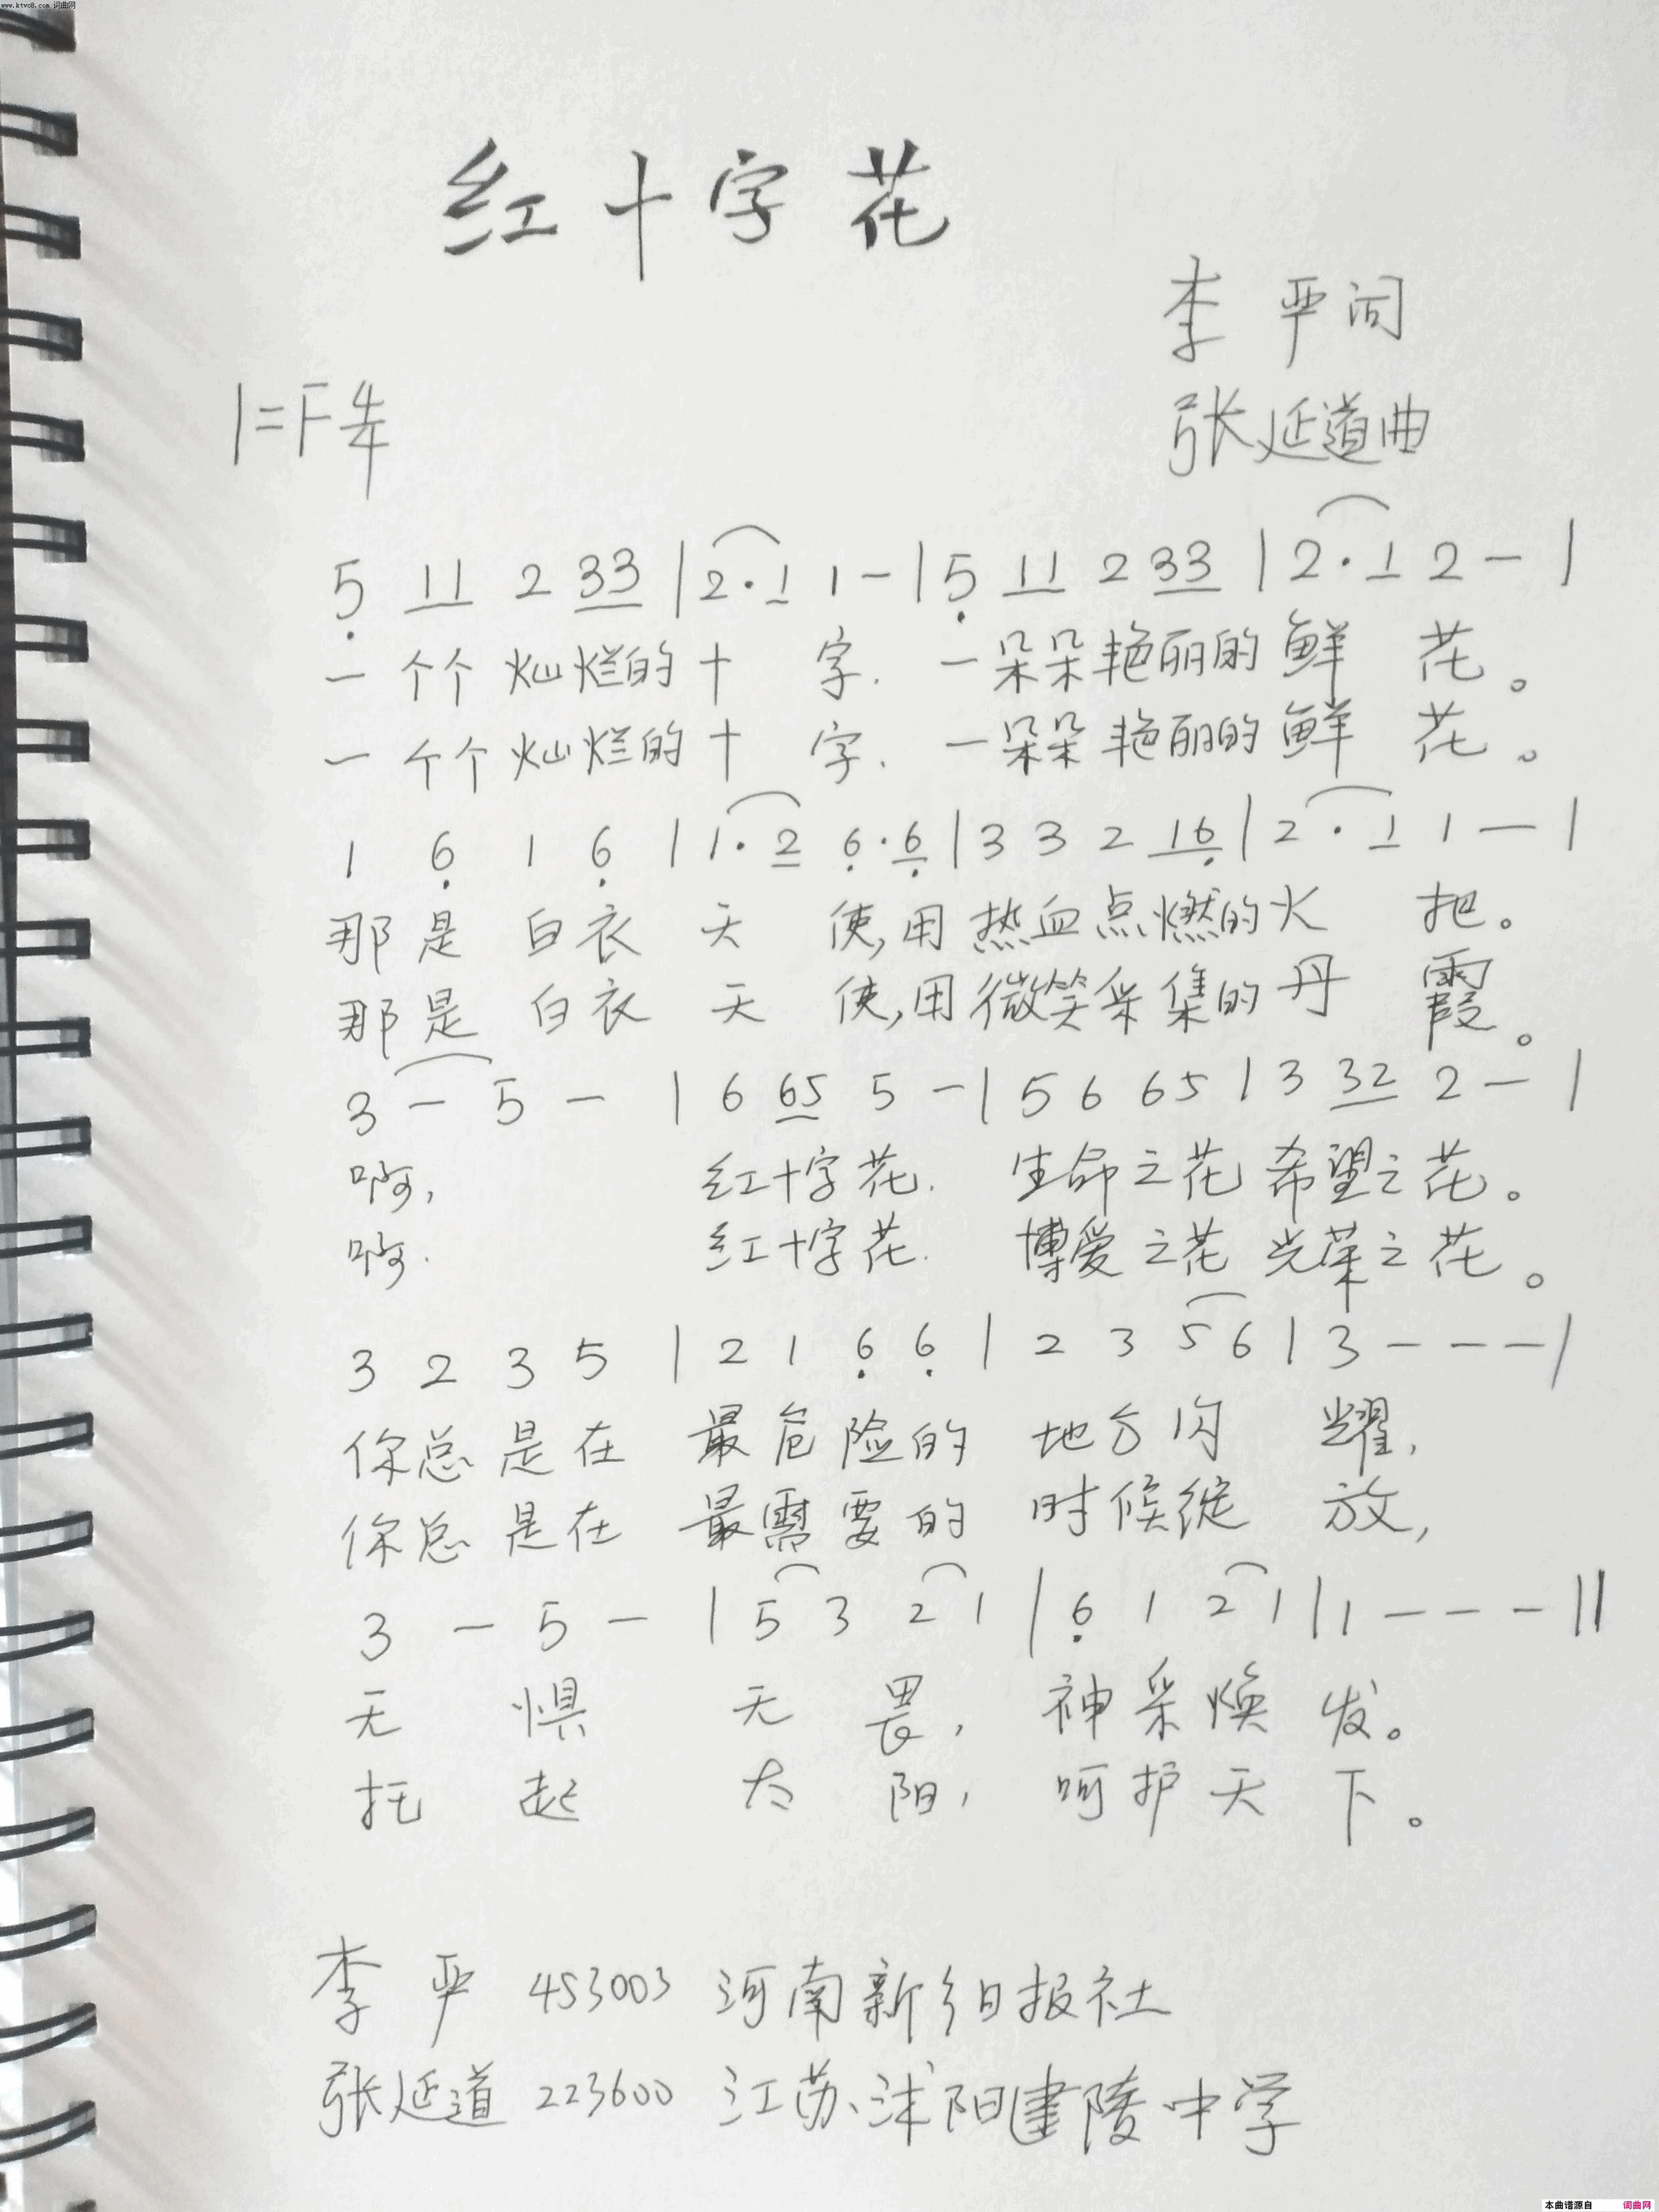 www.ktvc8.com 词曲网
红十字花
李 严词
张延道曲
1=F 4/4
5 11 2 33 | 2·1 1 - | 5 11 2 33 | 2·1 2 - |
一个个灿烂的十字. 一朵朵艳丽的鲜花。
一个个灿烂的十字. 一朵朵艳丽的鲜花。
1 6 1 6 | 1·2 6·6 | 3 3 2 16 | 2·1 1 - |
那是白衣天使,用热血点燃的火把。
那是白衣天使,用微笑采集的丹霞。
3 - 5 - | 6 65 5 - | 5 6 65 | 3 32 2 - |
啊, 红十字花. 生命之花 希望之花。
啊. 红十字花. 博爱之花 光荣之花。
3 2 3 5 | 2 1 6 6 | 2 3 5 6 | 3 - - - |
你总是在 最危险的 地方闪耀,
你总是在 最需要的 时候绽放,
3 - 5 - | 5 3 2 1 | 6 1 2 1 | 1 - - - ||
无惧无畏, 神采焕发。
托起太阳, 呵护天下。
李 严 453003 河南新乡日报社
张延道 223600 江苏沭阳建陵中学
本曲谱源自 词曲网